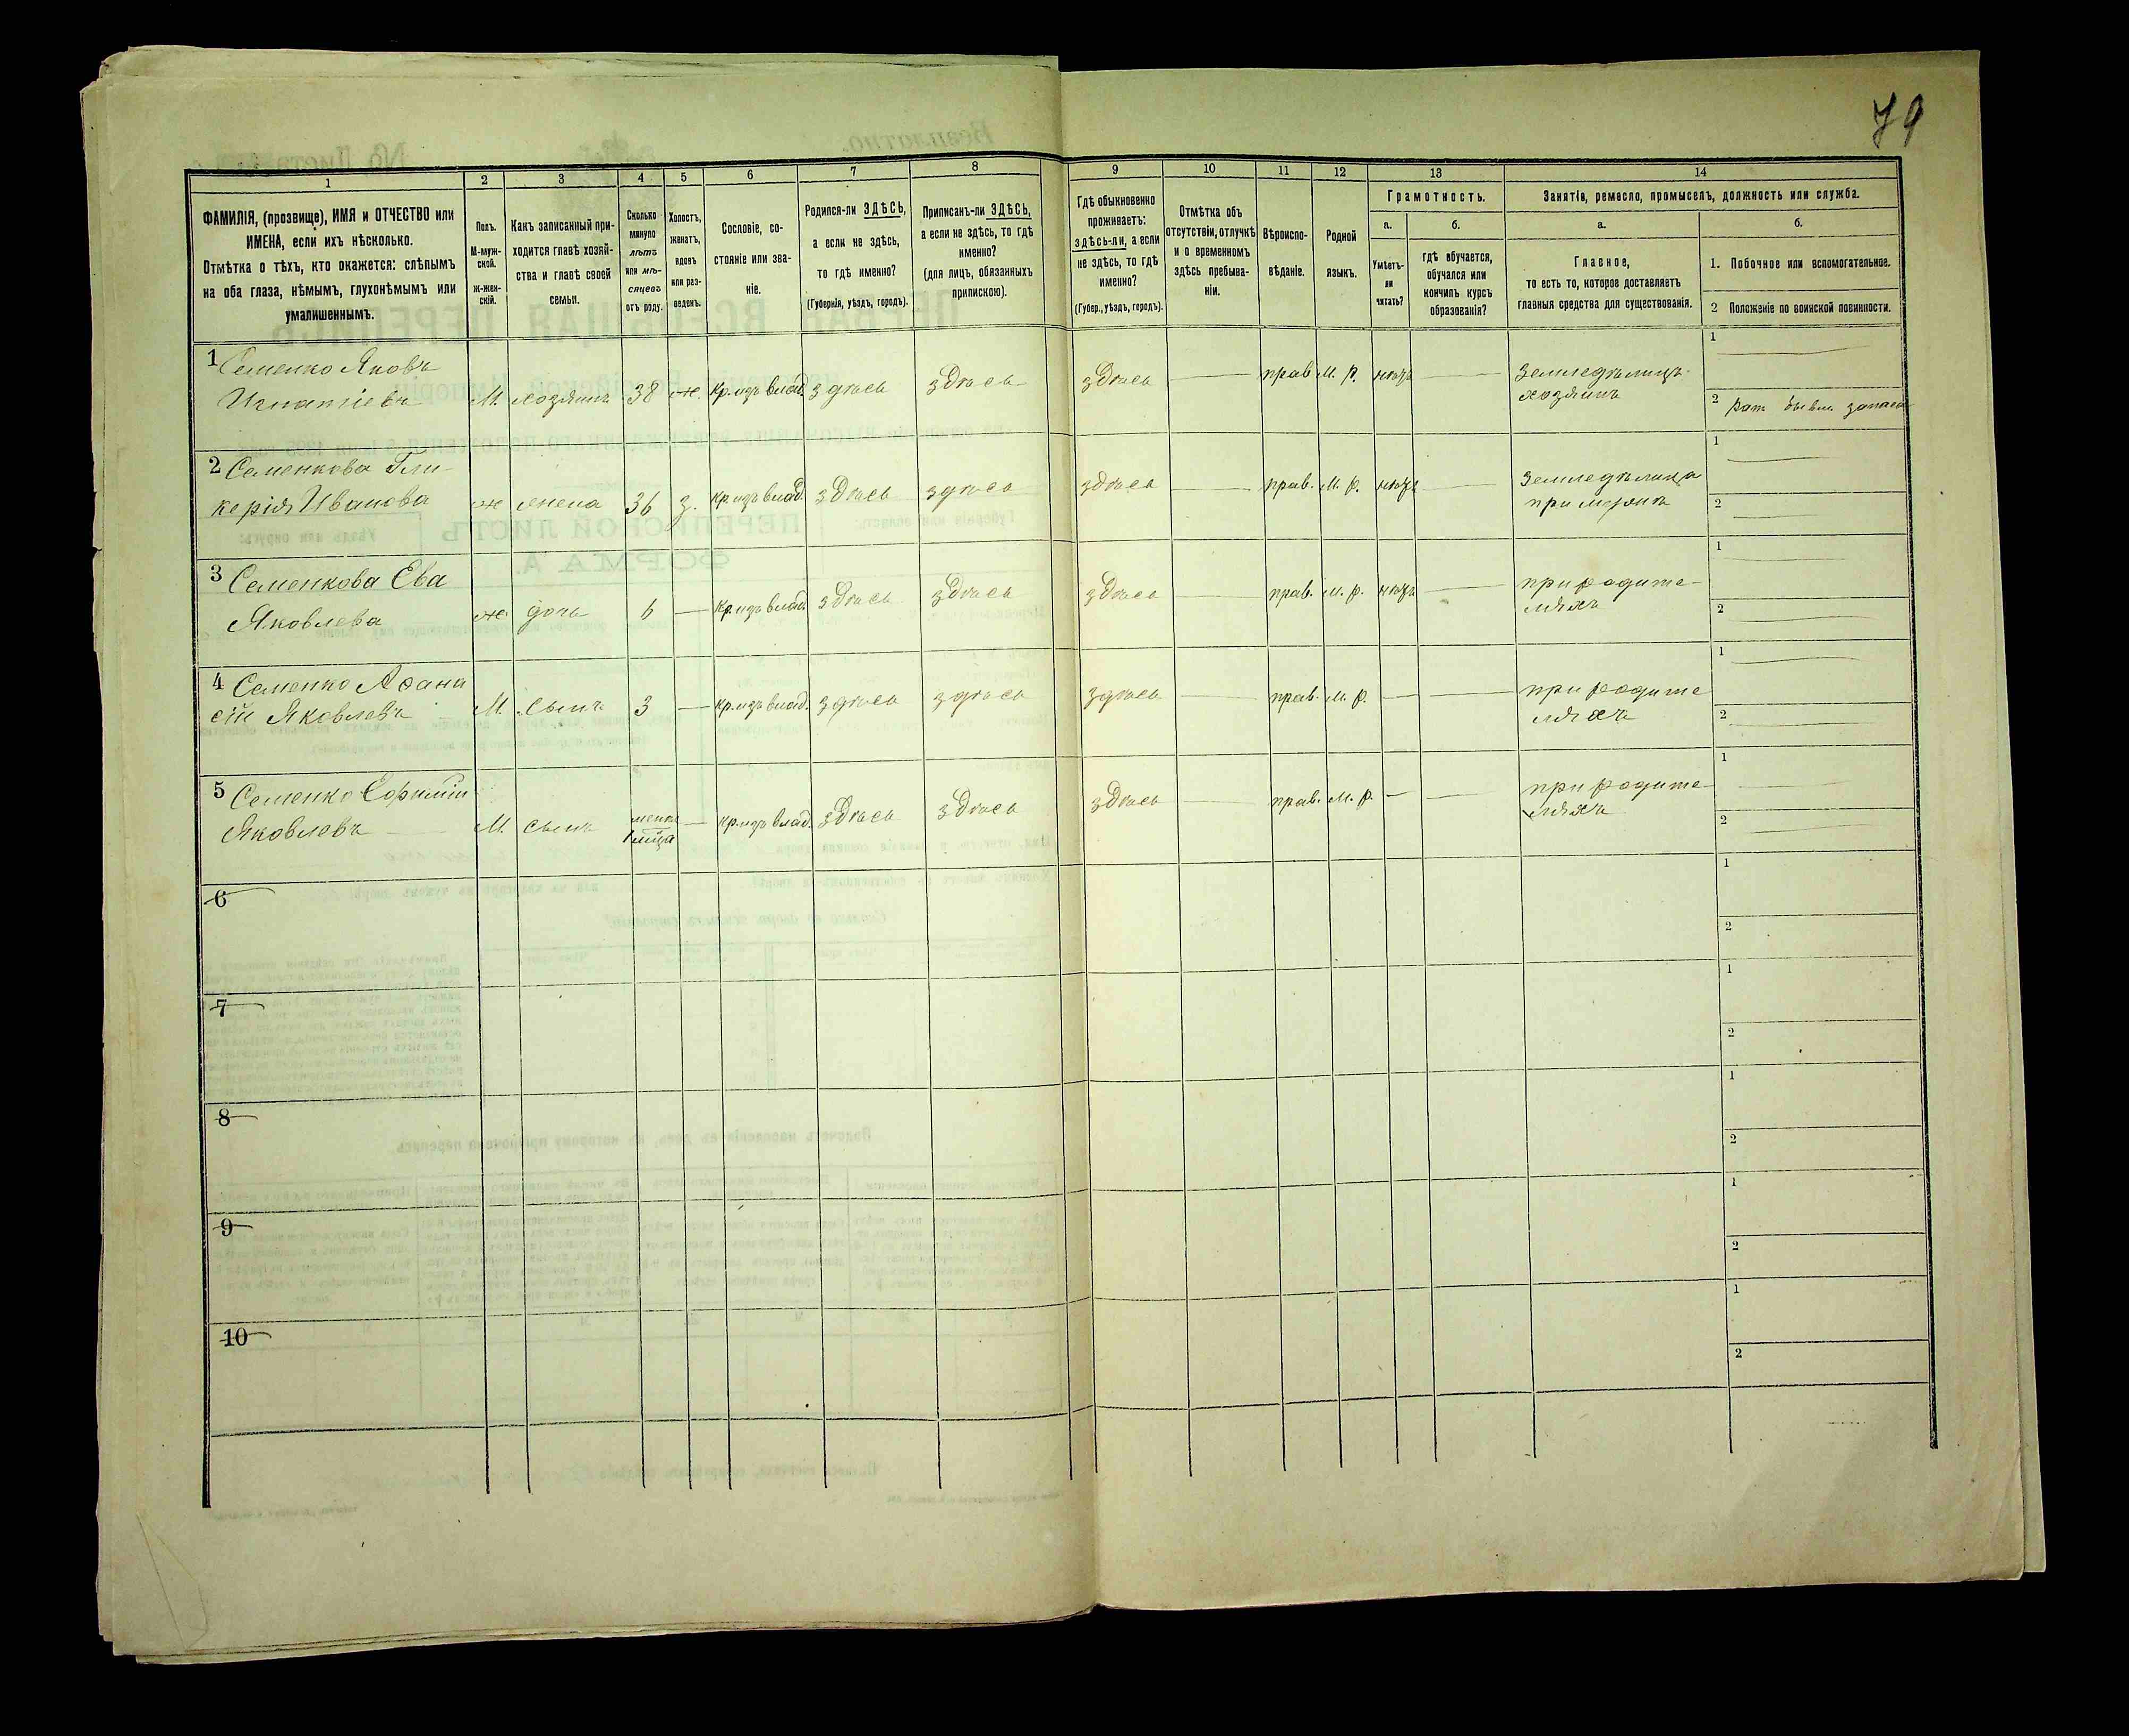 79
1
2
3
4
5
6
7
8
9
10
11
12
13
14
ФАМИЛІЯ, (прозвище), ИМЯ и ОТЧЕСТВО или
ИМЕНА, если ихъ нѣсколько.
Отмѣтка о тѣхъ, кто окажется: слѣпымъ
на оба глаза, нѣмымъ, глухонѣмымъ или
умалишеннымъ.
Полъ.
М-муж-
ской.
ж-жен-
скій.
Какъ записанный при-
ходится главѣ хозяй-
ства и главѣ своей
семьи.
Сколько
минуло
лѣтъ
или мѣ-
сяцевъ
отъ роду.
Холостъ,
женатъ,
вдовъ
или раз-
веденъ.
Сословіе, со-
стояніе или зва-
ніе.
Родился-ли ЗДѢСЬ,
а если не здѣсь,
то гдѣ именно?
(Губернія, уѣздъ, городъ).
Приписанъ-ли ЗДѢСЬ,
а если не здѣсь, то гдѣ
именно?
(для лицъ, обязанныхъ
припискою).
Гдѣ обыкновенно
проживаетъ:
здѣсь-ли, а если
не здѣсь, то гдѣ
именно?
(Губер., уѣздъ, городъ).
Отмѣтка объ
отсутствіи, отлучкѣ
и о временномъ
здѣсь пребыва-
ніи.
Вѣроиспо-
вѣданіе.
Родной
языкъ.
Грамотность.
а.
Умѣетъ-
ли
читать?
б.
гдѣ обучается,
обучался или
кончилъ курсъ
образованія?
Занятіе, ремесло, промыселъ, должность или служба.
а.
Главное,
то есть то, которое доставляетъ
главныя средства для существованія.
б.
1. Побочное или вспомогательное.
2 Положеніе по воинской повинности.
1 Семенко Яковъ
Игнатіевъ М. хозяинъ 38 ж. кр. изъ влад. здѣсь здѣсь здѣсь — прав. М. р. нѣтъ —
земледѣлецъ
хозяинъ
1 —
2 бывш. запаса
2 Семенкова Гли-
керія Иванова ж жена 36 з. кр. изъ влад. здѣсь здѣсь здѣсь — прав. М. р. нѣтъ —
земледѣлица
при мужѣ
1 —
2 —
3 Семенкова Ева
Яковлева ж дочь 6 — кр. изъ влад. здѣсь здѣсь здѣсь — прав. м. р. нѣтъ —
при родите-
ляхъ
1 —
2 —
4 Семенко Аѳана
сій Яковлевъ М. сынъ 3 — кр. изъ влад. здѣсь здѣсь здѣсь — прав. м. р. — —
при родите
ляхъ
1 —
2 —
5 Семенко Ефимій
Яковлевъ М. сынъ — кр. изъ влад. здѣсь здѣсь здѣсь — прав. м. р. — —
при родите
ляхъ
1 —
2 —
6
1
2
7
1
2
8
1
2
9
1
2
10
1
2